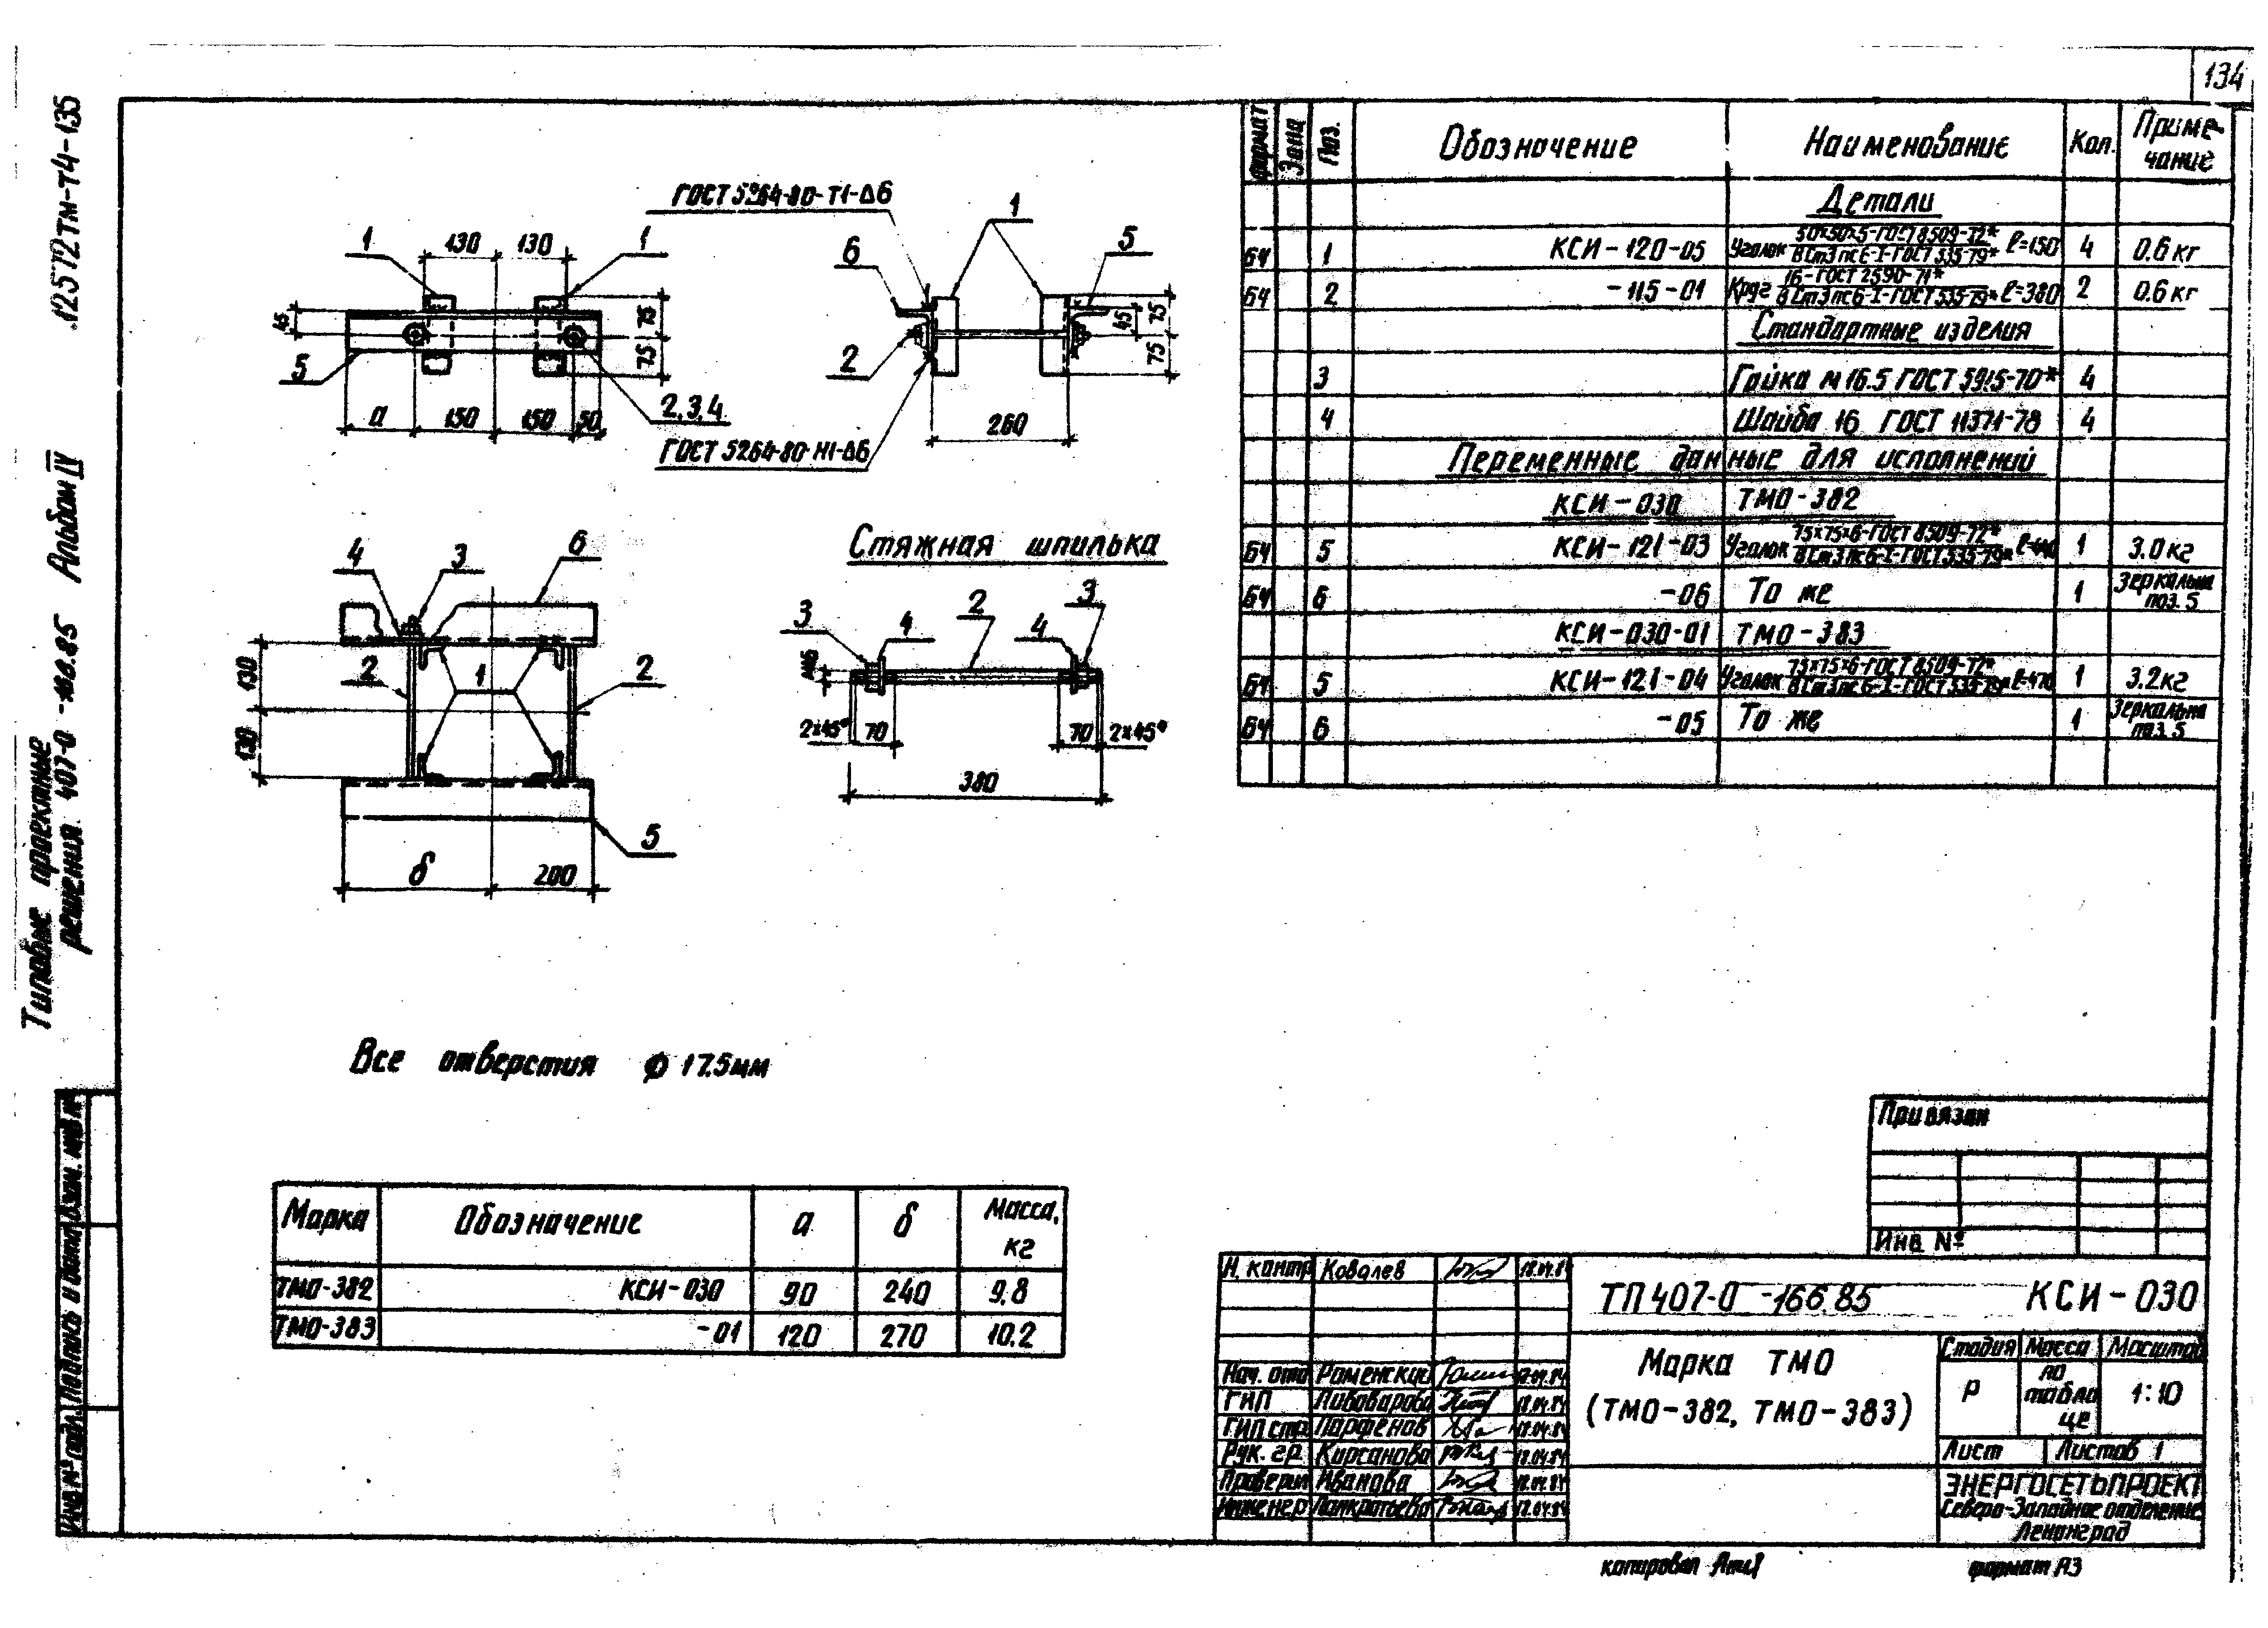 134
12572тм-т4-135
Типовые проектные
решения 407-0-166.85 Альбом IV
ГОСТ 5264-80-Т1-Δ6
1
130
130
1
45
75
75
5
2,3,4
а
150
150
50
6
1
5
2
45
75
75
260
ГОСТ 5264-80-Н1-Δ6
4
3
6
130
130
2
1
2
5
б
200
Стяжная шпилька
3
4
2
4
3
М16
2×45°
70
70
2×45°
380
Формат
Зона
Поз.
Обозначение
Наименование
Кол.
Приме-
чание
Детали
БЧ 1 КСИ-120-05 Уголок 50×50×5-ГОСТ 8509-72* / ВСт3пс6-I-ГОСТ 535-79* ℓ=150 4 0.6 кг
БЧ 2 -115-01 Круг 16-ГОСТ 2590-71* / ВСт3пс6-I-ГОСТ 535-79* ℓ=380 2 0.6 кг
Стандартные изделия
3 Гайка М16.5 ГОСТ 5915-70* 4
4 Шайба 16 ГОСТ 11371-78 4
Переменные данные для исполнений
КСИ-030 ТМО-382
БЧ 5 КСИ-121-03 Уголок 75×75×6-ГОСТ 8509-72* / ВСт3пс6-I-ГОСТ 535-79* ℓ=440 1 3.0 кг
БЧ 6 -06 То же 1 Зеркальна поз. 5
КСИ-030-01 ТМО-383
БЧ 5 КСИ-121-04 Уголок 75×75×6-ГОСТ 8509-72* / ВСт3пс6-I-ГОСТ 535-79* ℓ=470 1 3.2 кг
БЧ 6 -05 То же 1 Зеркальна поз. 5
Все отверстия ϕ 17.5мм
Марка Обозначение а б Масса, кг
ТМО-382 КСИ-030 90 240 9.8
ТМО-383 -01 120 270 10.2
Привязан
Инв №
Инв № подл. Подпись и дата Взам. инв №
Н. контр Ковалев 18.04.84
Нач. отд Роменский 18.04.84
ГИП Пивоварова 18.04.84
ГИП стр Парфенов 18.04.84
Рук. гр. Кирсанова 18.04.84
Проверил Иванова 18.04.84
Инженер Панкратьева 18.04.84
ТП 407-0-166.85 КСИ-030
Марка ТМО
(ТМО-382, ТМО-383)
Стадия Масса Масштаб
Р по таблице 1:10
Лист Листов 1
ЭНЕРГОСЕТЬПРОЕКТ
Северо-Западное отделение
Ленинград
копировал
формат А3